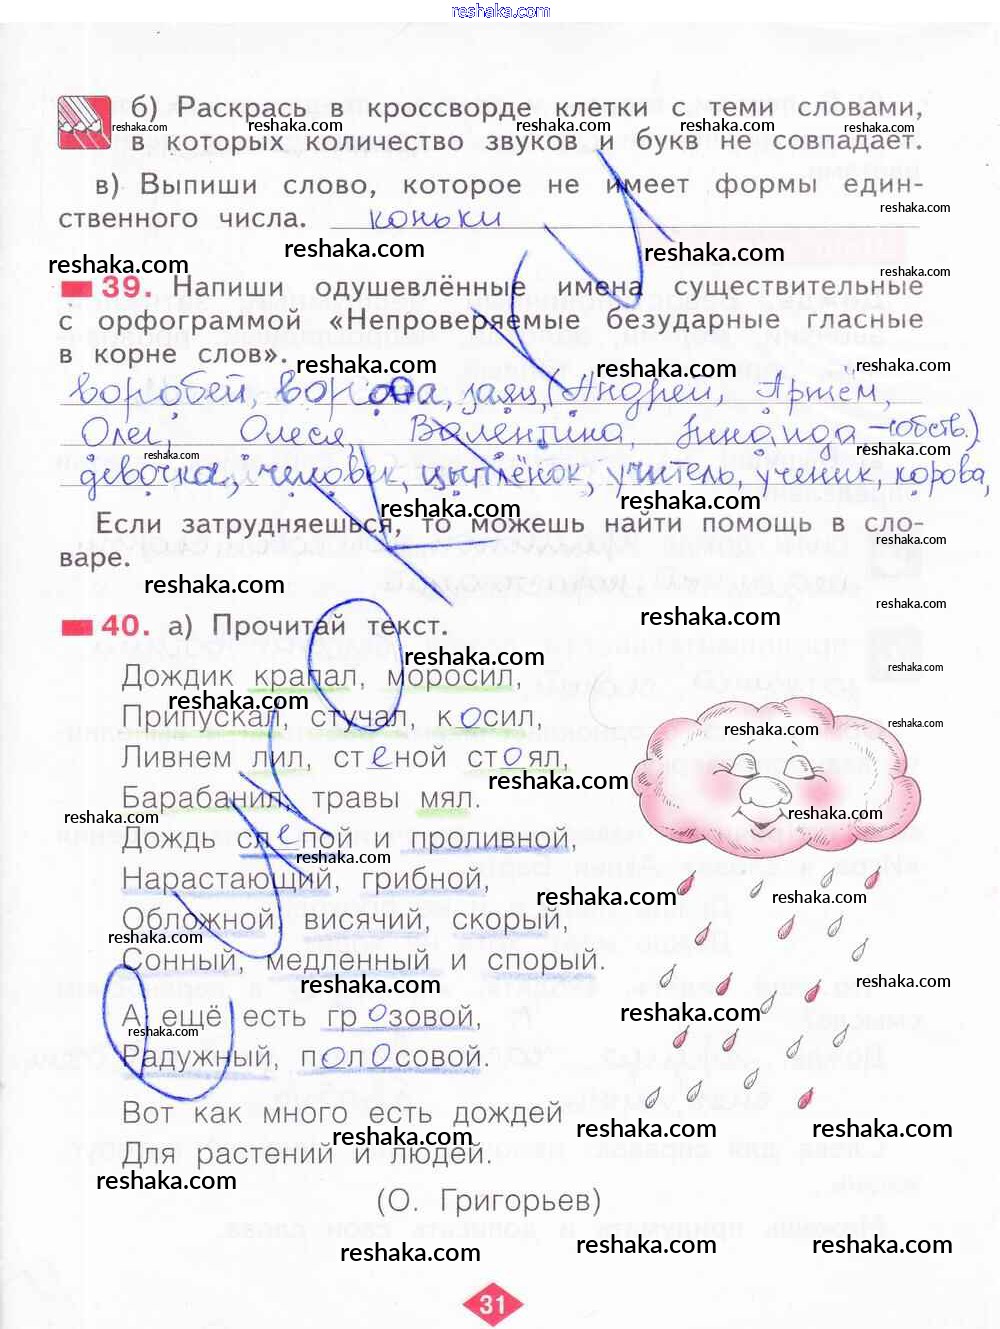 reshaka.com
б) Раскрась в кроссворде клетки с теми словами,
reshaka.com reshaka.com reshaka.com reshaka.com
в которых количество звуков и букв не совпадает.
в) Выпиши слово, которое не имеет формы един-
ственного числа. коньки
reshaka.com
reshaka.com reshaka.com reshaka.com
39. Напиши одушевлённые имена существительные
с орфограммой «Непроверяемые безударные гласные
в корне слов».
reshaka.com reshaka.com reshaka.com
воробей, ворона, заяц, (Андрей, Артём,
Олег, Олеся, Валентина, -собств.)
reshaka.com reshaka.com
девочка, человек, цыплёнок, учитель, ученик, корова,
reshaka.com reshaka.com
Если затрудняешься, то можешь найти помощь в сло-
reshaka.com
варе.
reshaka.com
reshaka.com reshaka.com
40. а) Прочитай текст.
reshaka.com reshaka.com
Дождик крапал, моросил,
reshaka.com
Припускал, стучал, косил,
reshaka.com reshaka.com
Ливнем лил, стеной стоял,
reshaka.com
Барабанил, травы мял.
reshaka.com reshaka.com
Дождь слепой и проливной,
reshaka.com
Нарастающий, грибной,
reshaka.com reshaka.com
Обложной, висячий, скорый,
reshaka.com
Сонный, медленный и спорый.
reshaka.com reshaka.com
А ещё есть грозовой,
reshaka.com reshaka.com
Радужный, полосовой.
Вот как много есть дождей
reshaka.com reshaka.com reshaka.com
Для растений и людей.
reshaka.com
(О. Григорьев)
reshaka.com reshaka.com reshaka.com
31